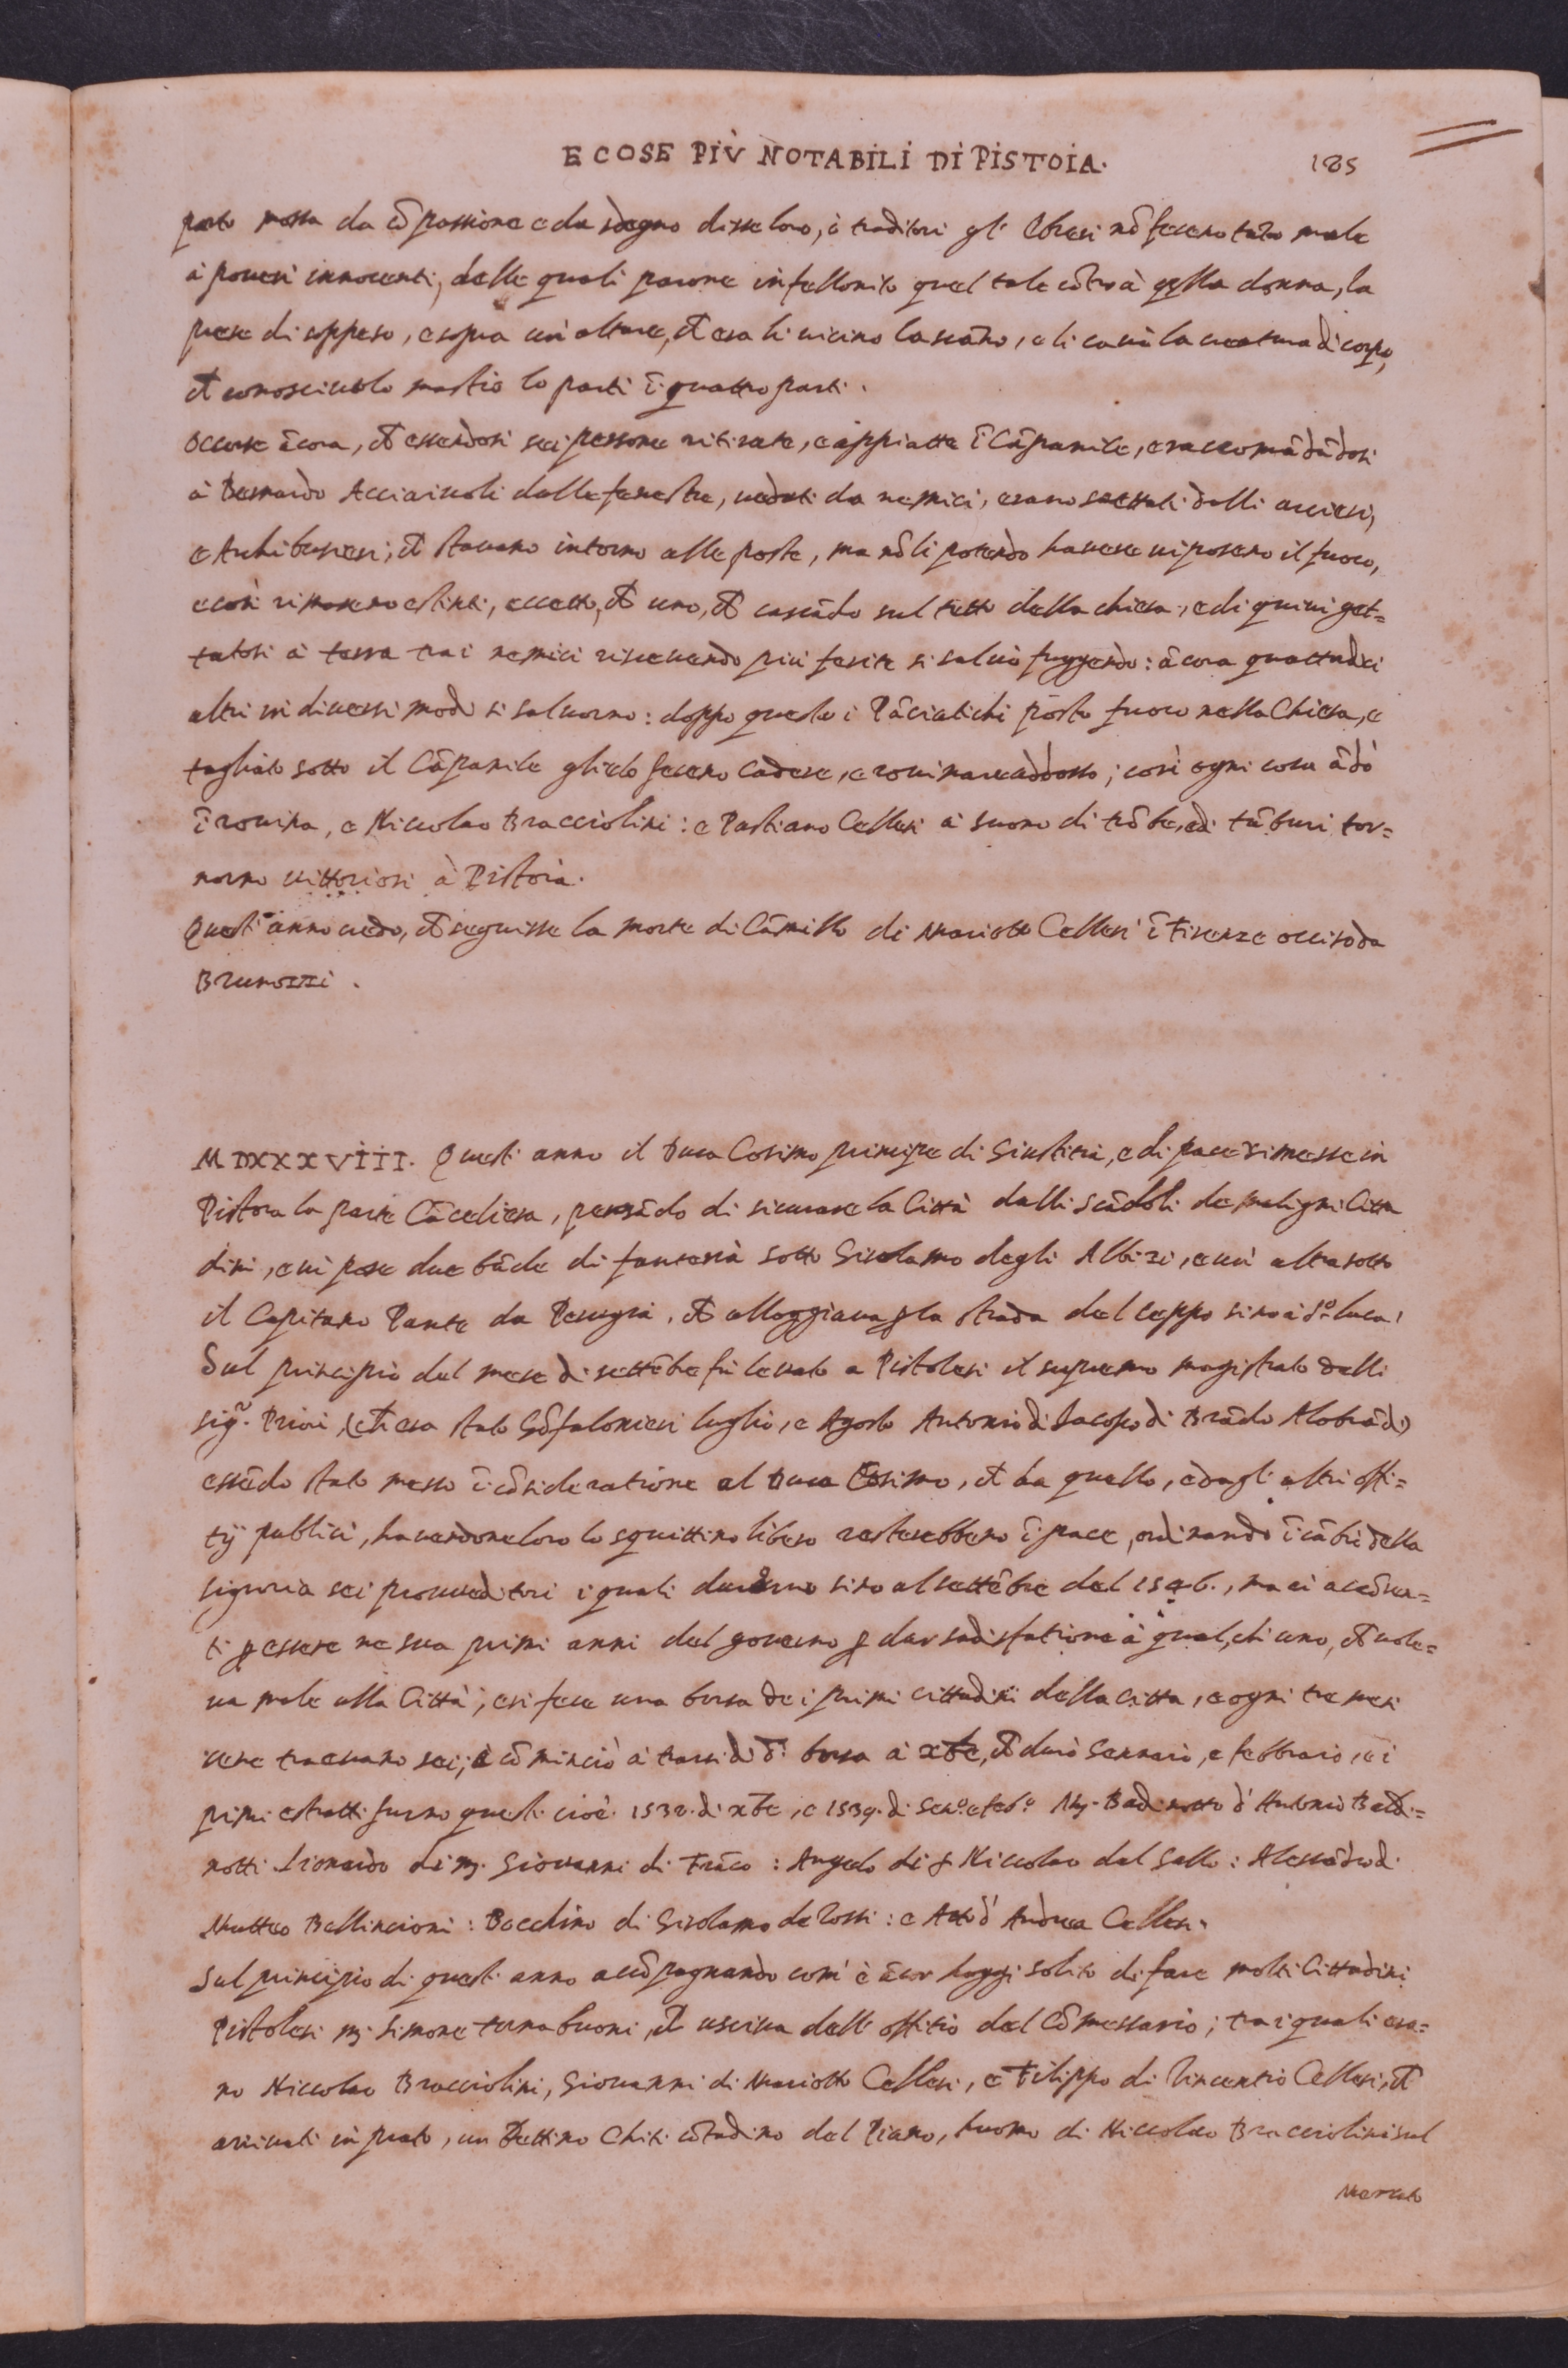 E COSE PIÙ NOTABILI DI PISTOIA. 185
parto mossa da cõpassione e da sdegno disse loro, ò traditori gl' Ebrei nõ fecero tãto male
à poueri innocenti, delle quali parone infellonito quel tale cõtro à q̃lla donna, la
prese di soppeso, e sopra un' altare, ch̃ era li uicino la scãnò, e li cauò la creatura di corpo,
ch̃ conosciutolo mastio lo partì ĩ quattro parti.
Occorse ãcora, ch̃ essendosi sei persone ritirate, e appiatte ĩ Cãpanile, e raccomãdãdosi
à Bernardo Acciaiuoli dalle fenestre, ueduti da nemici, erano saettati dalli arcieri,
e Archibusieri; ch̃ stauano intorno alle porte, ma nõ li potendo hauere ui posero il fuoco,
e così rimasero estinti, eccetto, ch̃ uno, ch̃ cascãdo sul tetto della chiesa, e di quiui get=
tatosi à terra tra i nemici riceuendo più ferite si saluò fuggendo: ãcora quattordici
altri in diuersi modi si saluorno: doppo questo i Pãciatichi posto fuoco nella Chiesa, e
tagliato sotto il Cãpanile glielo fecero cadere, e rouinare addosso; così ogni cosa ãdò
ĩ rouina, e Niccolao Bracciolini: e Bastiano Cellesi à suono di trõbe, e di tãburi tor=
norno uittoriosi à Pistoia.
Quest' anno credo, ch̃ seguisse la morte di Cãmillo di Mariotto Cellesi ĩ Firenze occiso da
Brunozzi.
MDXXXVIII. Quest' anno il Duca Cosimo principe di Giustitia, e di pace rimesse in
Pistoia la parte Cãceliera, pensãdo di sicurare la Città dalli scãdoli de maligni Citta
dini, e ui pose due bãde di fanteria sotto Girolamo degli Albizi, e un' altra sotto
il Capitano Pante da Perugia, ch̃ alloggiaua p la strada del ceppo sino à S.º Luca,
Sul principio del mese di settẽbre fù leuato a Pistolesi il supremo magistrato delli
sig.ri Priori, (ch̃ era stato Gõfalonieri luglio, e Agosto Antonio di Iacopo di Brãdo Alobrãdi)
essẽdo stato messo ĩ cõsideratione al Duca Cosimo, ch̃ da quello, e dagli altri offi=
tij publici, hauendone loro lo squittino libero resterebbero ĩ pace, ordinando ĩ cãbio della
signoria sei proueditori i quali durorno sino al settẽbre del 1546., ma ei accõsen=
tì p essere ne sua primi anni del gouerno p dar sadisfatione à qual, chi uno, ch̃ uole=
ua male alla Città; e si fece una borsa de i primi cittadini della citta, e ogni tre mesi
se ne traeuano sei; e cõminciò à trarsi di d.ª borsa à xbre, ch̃ durò Gennaio, e febbraio, e i
primi estratti furno questi cioè 1538. di xbre, e 1539. di Gen.º e feb.º M. Badinotto d' Antonio Baldi=
notti: Lionardo di m. Giovanni di Frãco: Angelo di s Niccolao dal Gallo: Alessãdro di
Matteo Bellincioni: Bacchino di Girolamo de Rossi: e Atto d' Andrea Cellesi.
Sul principio di quest' anno accõpagnando com' è ãcor hoggi solito di fare molti Cittadini
Pistolesi m. Simone tornabuoni, ch̃ usciua dell' offitio del Cõmessario; tra i quali era=
no Niccolao Bracciolini, Giouanni di Mariotto Cellesi, e Filippo di Vincentio Cellesi, ch̃
arriuati in prato, un Bettino Chiti cõtadino del Piano, huomo di Niccolao Bracciolini sul
Mercato